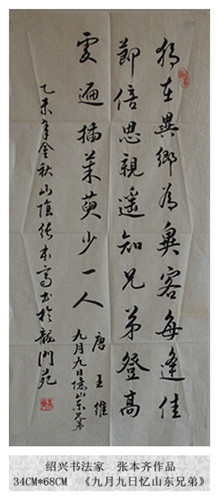 独在異鄉为異客每逢佳
節倍思親遥知兄弟登高
處遍插茱萸少一人
唐 王維
九月九日憶山東兄弟
乙未年金秋山陰張本齊书於龍門苑
绍兴书法家 张本齐作品
34CM*68CM 《九月九日忆山东兄弟》